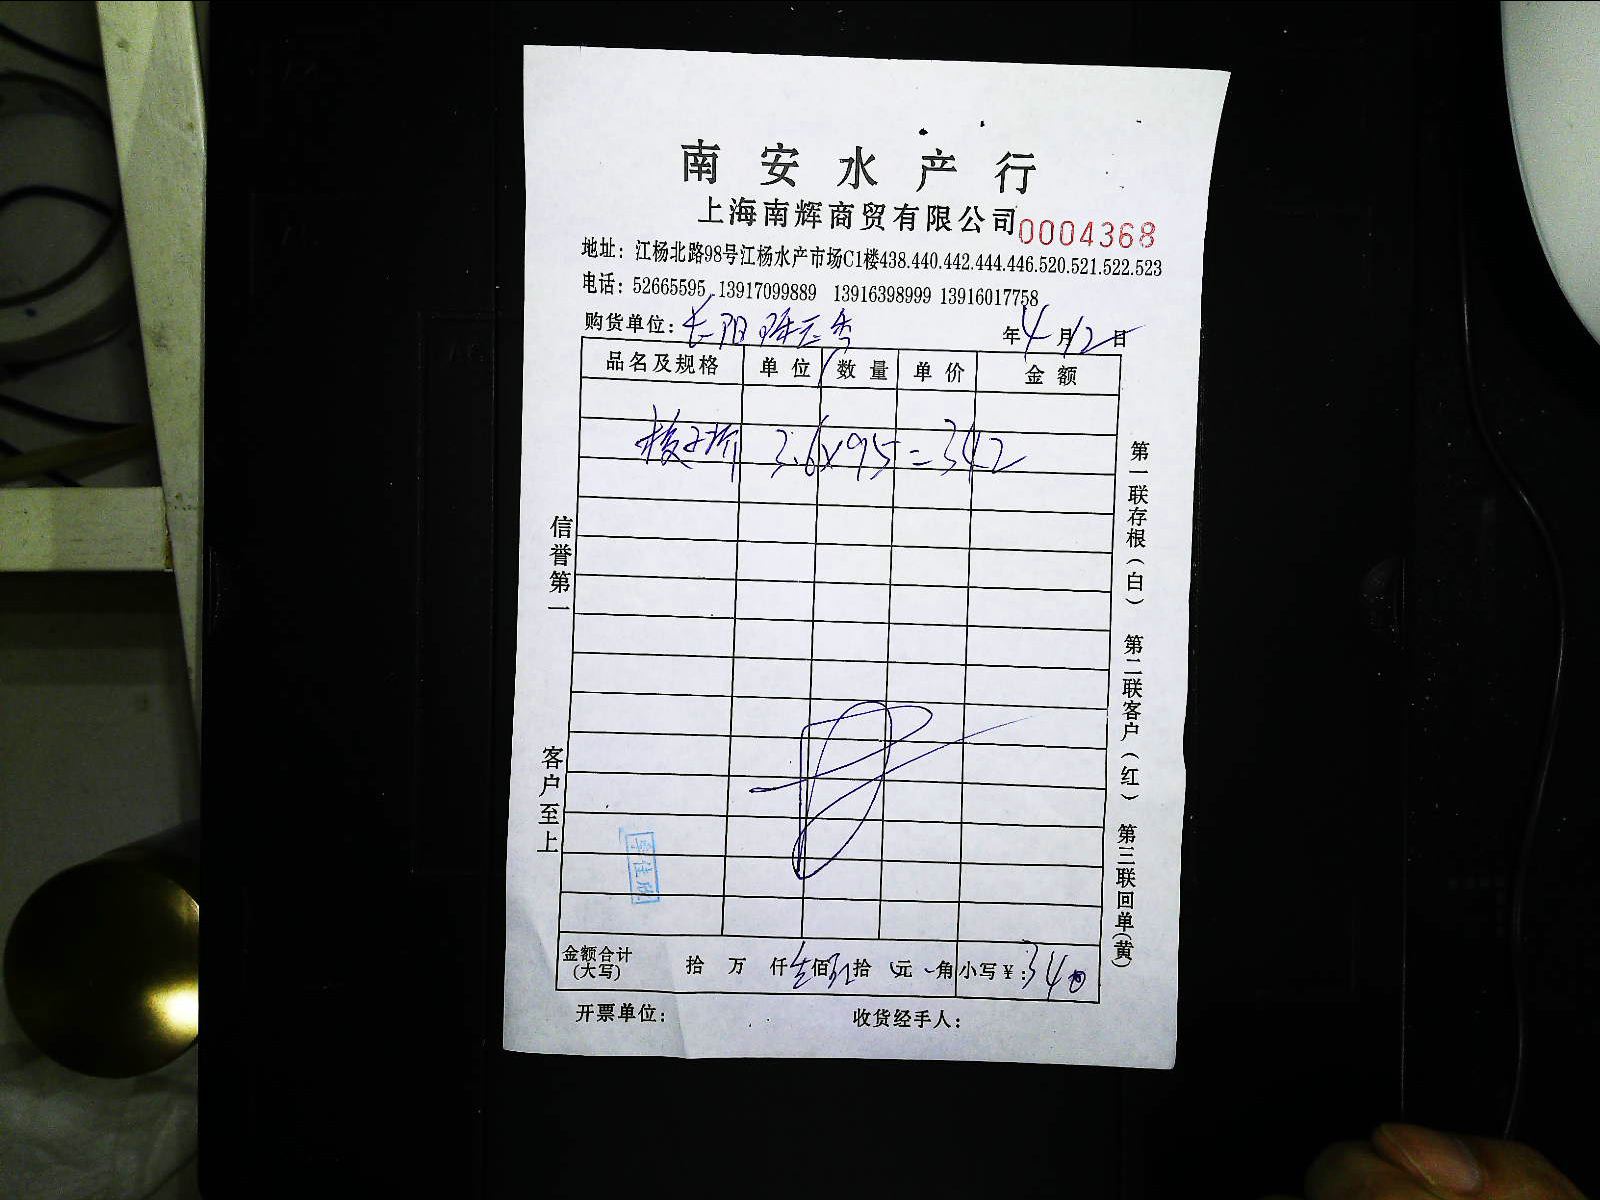 南安水产行
上海南辉商贸有限公司 0004368
地址：江杨北路98号江杨水产市场C1楼438.440.442.444.446.520.521.522.523
电话：52665595 13917099889 13916398999 13916017758
购货单位：长阳 年4月12日
品名及规格 单位 数量 单价 金额
梭子 3.6×95=342
金额合计(大写) 拾 万 仟 佰 拾 元 角 小写¥：340
开票单位： 收货经手人：
信誉第一 客户至上
第一联存根（白） 第二联客户（红） 第三联回单（黄）